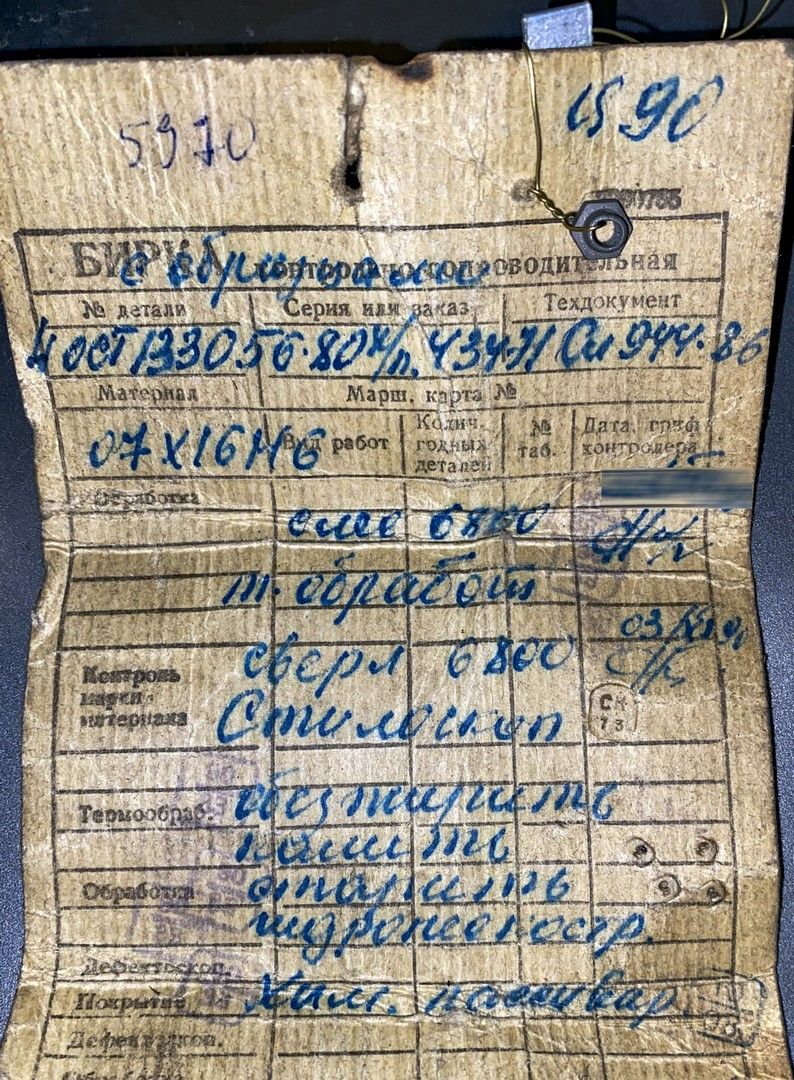 5970
1590
БИРКА контрольно-сопроводительная
с образцами
№ детали Серия или заказ Техдокумент
4 ОСТ 133056-80 х/п. 434-71 Си 944.86
Материал Марш. карта №
07Х16Н6
Вид работ Колич. годных деталей № таб. Дата, гриф контролера
Обработка
6800
т. обработ
03/XII 90
сверл 6800
Контроль марки материала
Стилоскоп
СК 73
обезжирить
Термообраб.
калить
Обработка отпарить
гидропескостр.
Дефектоскоп.
Покрытие Хим. пассивир
Дефектоскоп.